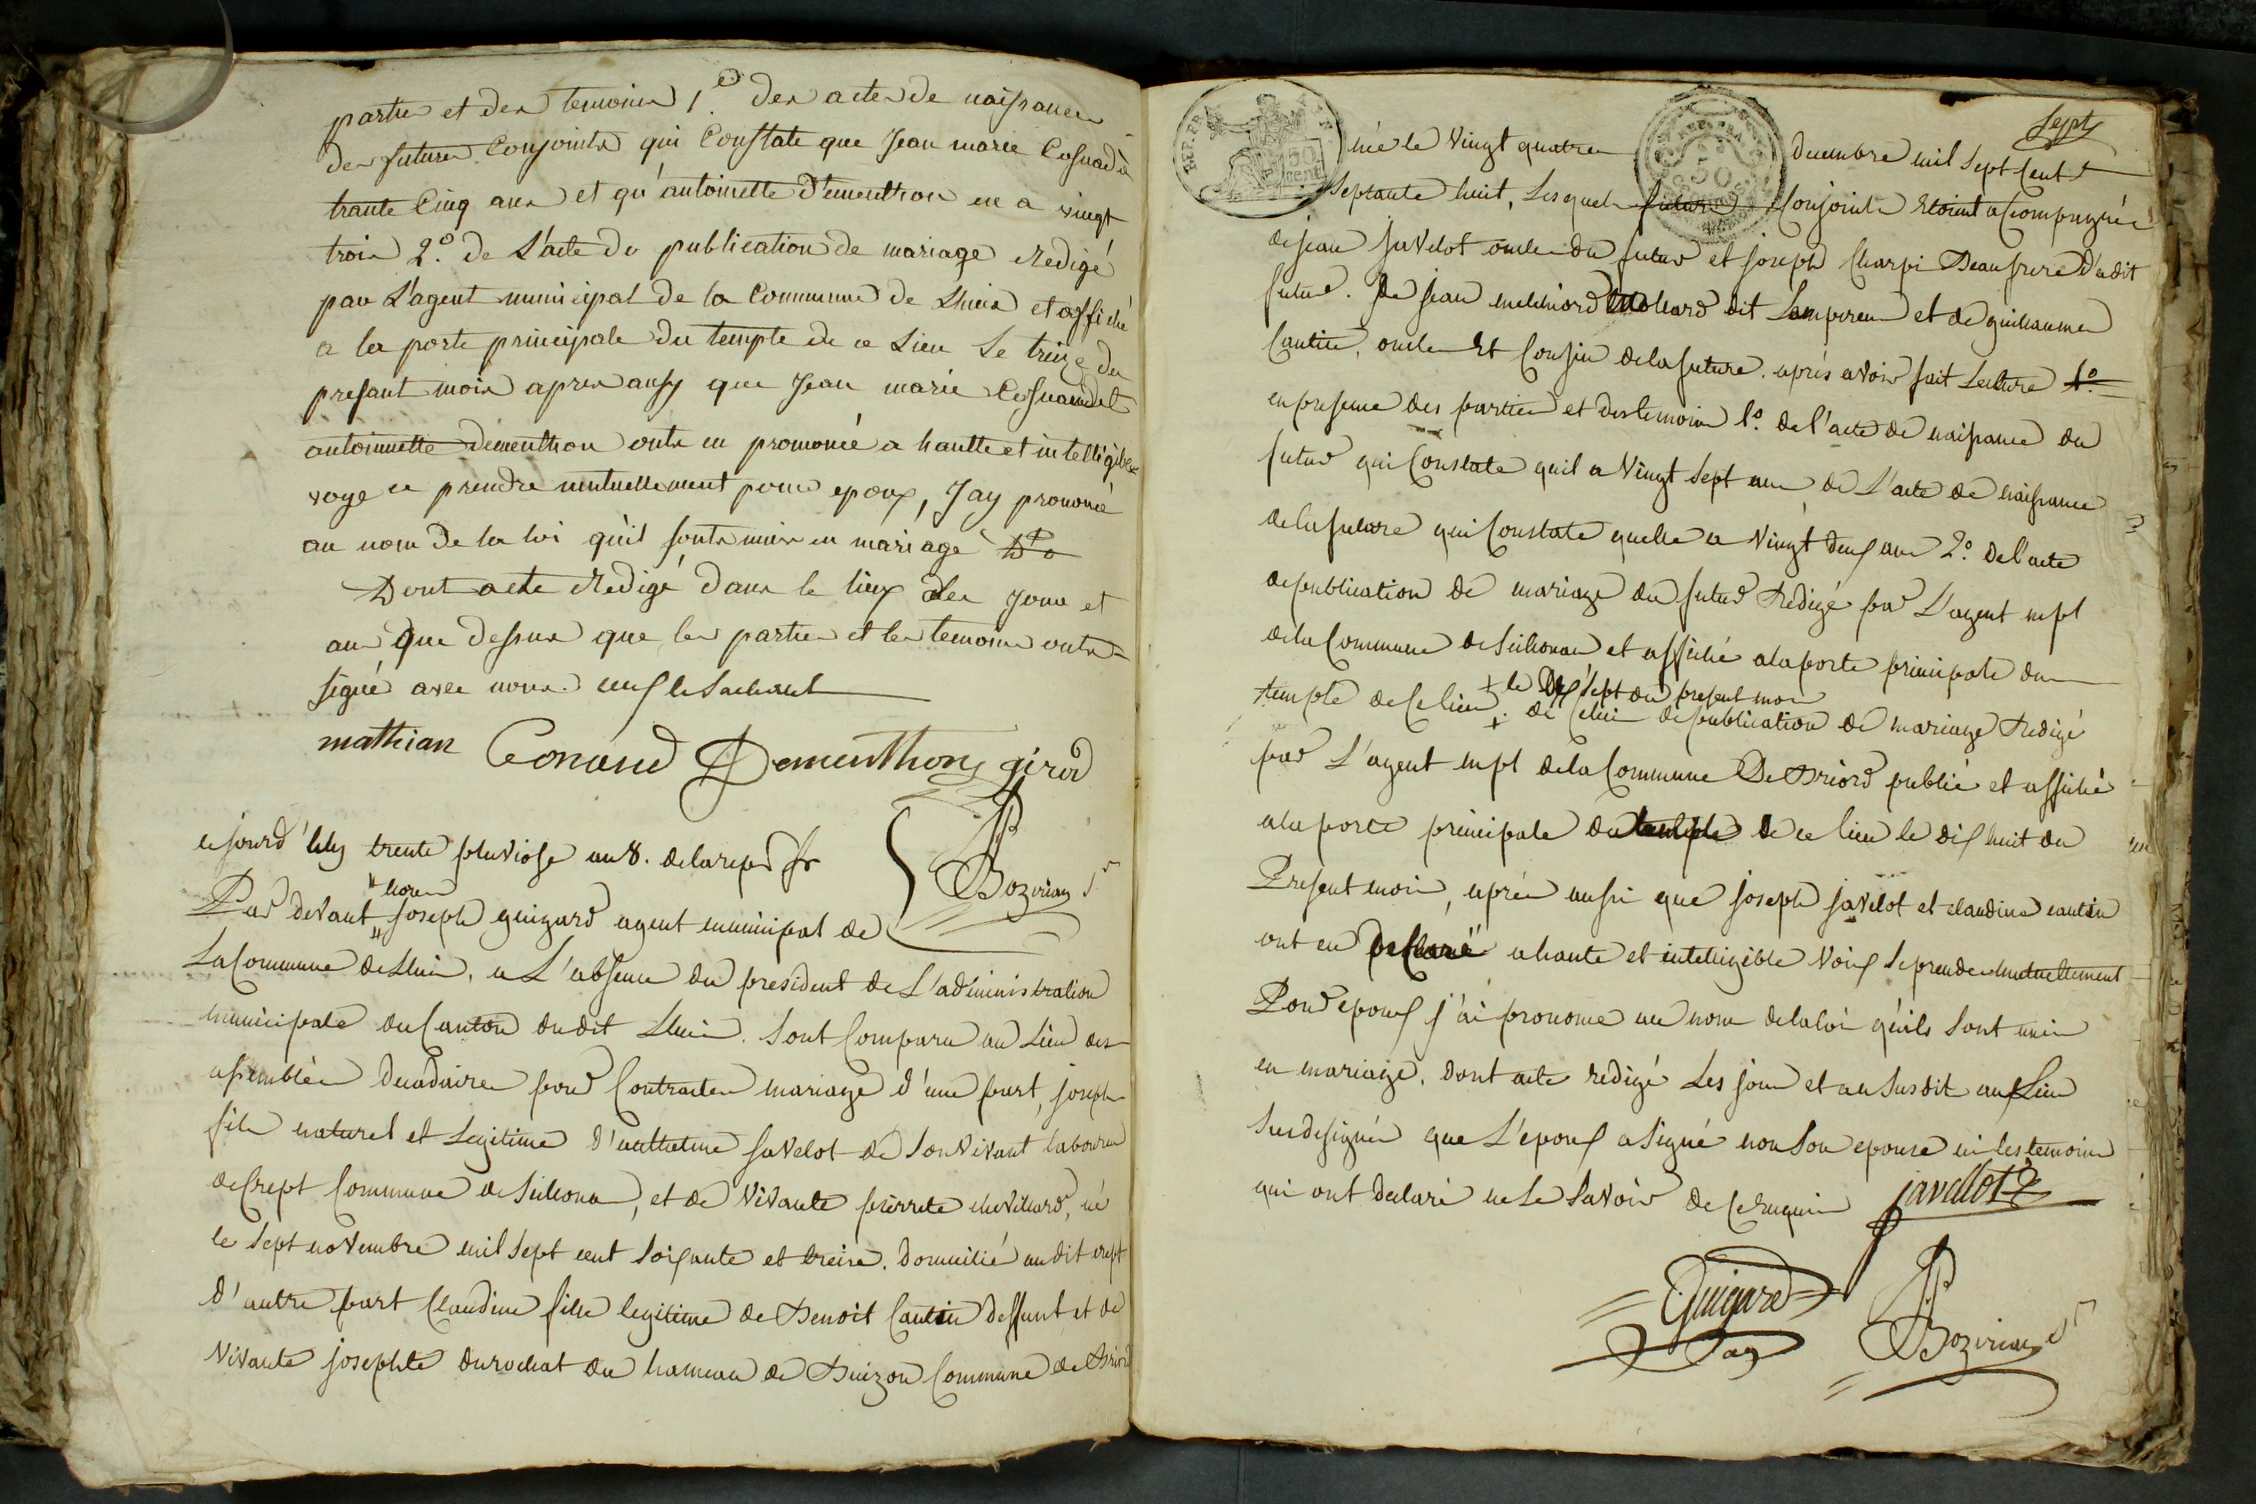 partie et des temoins 1.º des actes de naissance
des futures Conjoints qui Constate que Jean marie
trante Cinq ans et qu'antoinette Dementhon en a vingt
trois 2.º de L'acte de publication de mariage Redigé
par L'agent municipal de la Commune de Lhuis et affiché
a la porte principale du temple de ce Lieu Le treize du
presant mois apres ausy que Jean marie
antoinnette Dementhon onts en prononcé a hautte et intelligible
voye se prendre mutuellement pour epoux, Jay prononcé
au nom de la loi qu'il sonts unis en mariage
Dont acte Redigé dans le lieux les Jour et
an que dessus que les parties et les temoins onts
signé avec nous.
mathian Conand Dementhon girod
Bozirian
ce jourd'huy trente pluviose an 8. de la rep fr
Par devant nous Joseph guigard agent municipal de
La Commune de Lhuis, a L'absence du president de L'administration
municipale du Canton du dit Lhuis. Sont Comparu au Lieu des
assemblées decadaires pour Contracter mariage d'une part, joseph
fils naturel et Legitime d'anthelme javelot de Son vivant laboureur
de Crept Commune de Seillonas, et de vivante pierrete chevillard, né
le sept novembre mil sept cent soixante et treise. domicilié au dit crept
d'autre part Claudine fille legitime de Benoit Cantin deffunt et de
vivante josephte durochat du hameau de Buizon Commune de Briord
Sept
REP. FRA.
50 cent
REP. FRA.
50
née le vingt quatre decembre mil sept cent
septante huit, Lesquels futurs Conjoints Etoient acompagnés
de jean javelot oncle du futur et joseph Charpi Beaufrere d'udit
futur. De jean melchiord Mollard dit Lampereur et de guillaume
Cantin, oncle Et Cousin de la future. aprés avoir fait Lecture 1.º
en presence des parties et des temoins 1.º de l'acte de naissance du
futur qui Constate quil a vingt sept ans de L'acte de naissance
de la future qui Constate quelle a vingt deux ans 2.º de l'acte
de publication de mariage du futur Redigé par L'agent mpl
de la Commune de Seillonas et affiché a la porte principale du
temple de Ce lieu + le dix sept du present mois
+ de Celui de publication de mariage Redigé
par L'agent mpl de la Commune De Briord publié et affiché
a la porte principale du temple de ce lieu le dix huit du
Present mois, aprés aussi que joseph javelot et claudine cantin
ont en declaré a haute et intelligible voix se prendre mutuellement
Pour epoux j'ai prononcé au nom de la loi qu'ils sont unis
en mariage, dont acte redigé Les jour et an susdit au Lieu
sus designés que L'epoux a signé non son epouse ni les temoins
qui ont declaré ne Le savoir de Ce Enquis javellot
Guigard
ag
Bozirian